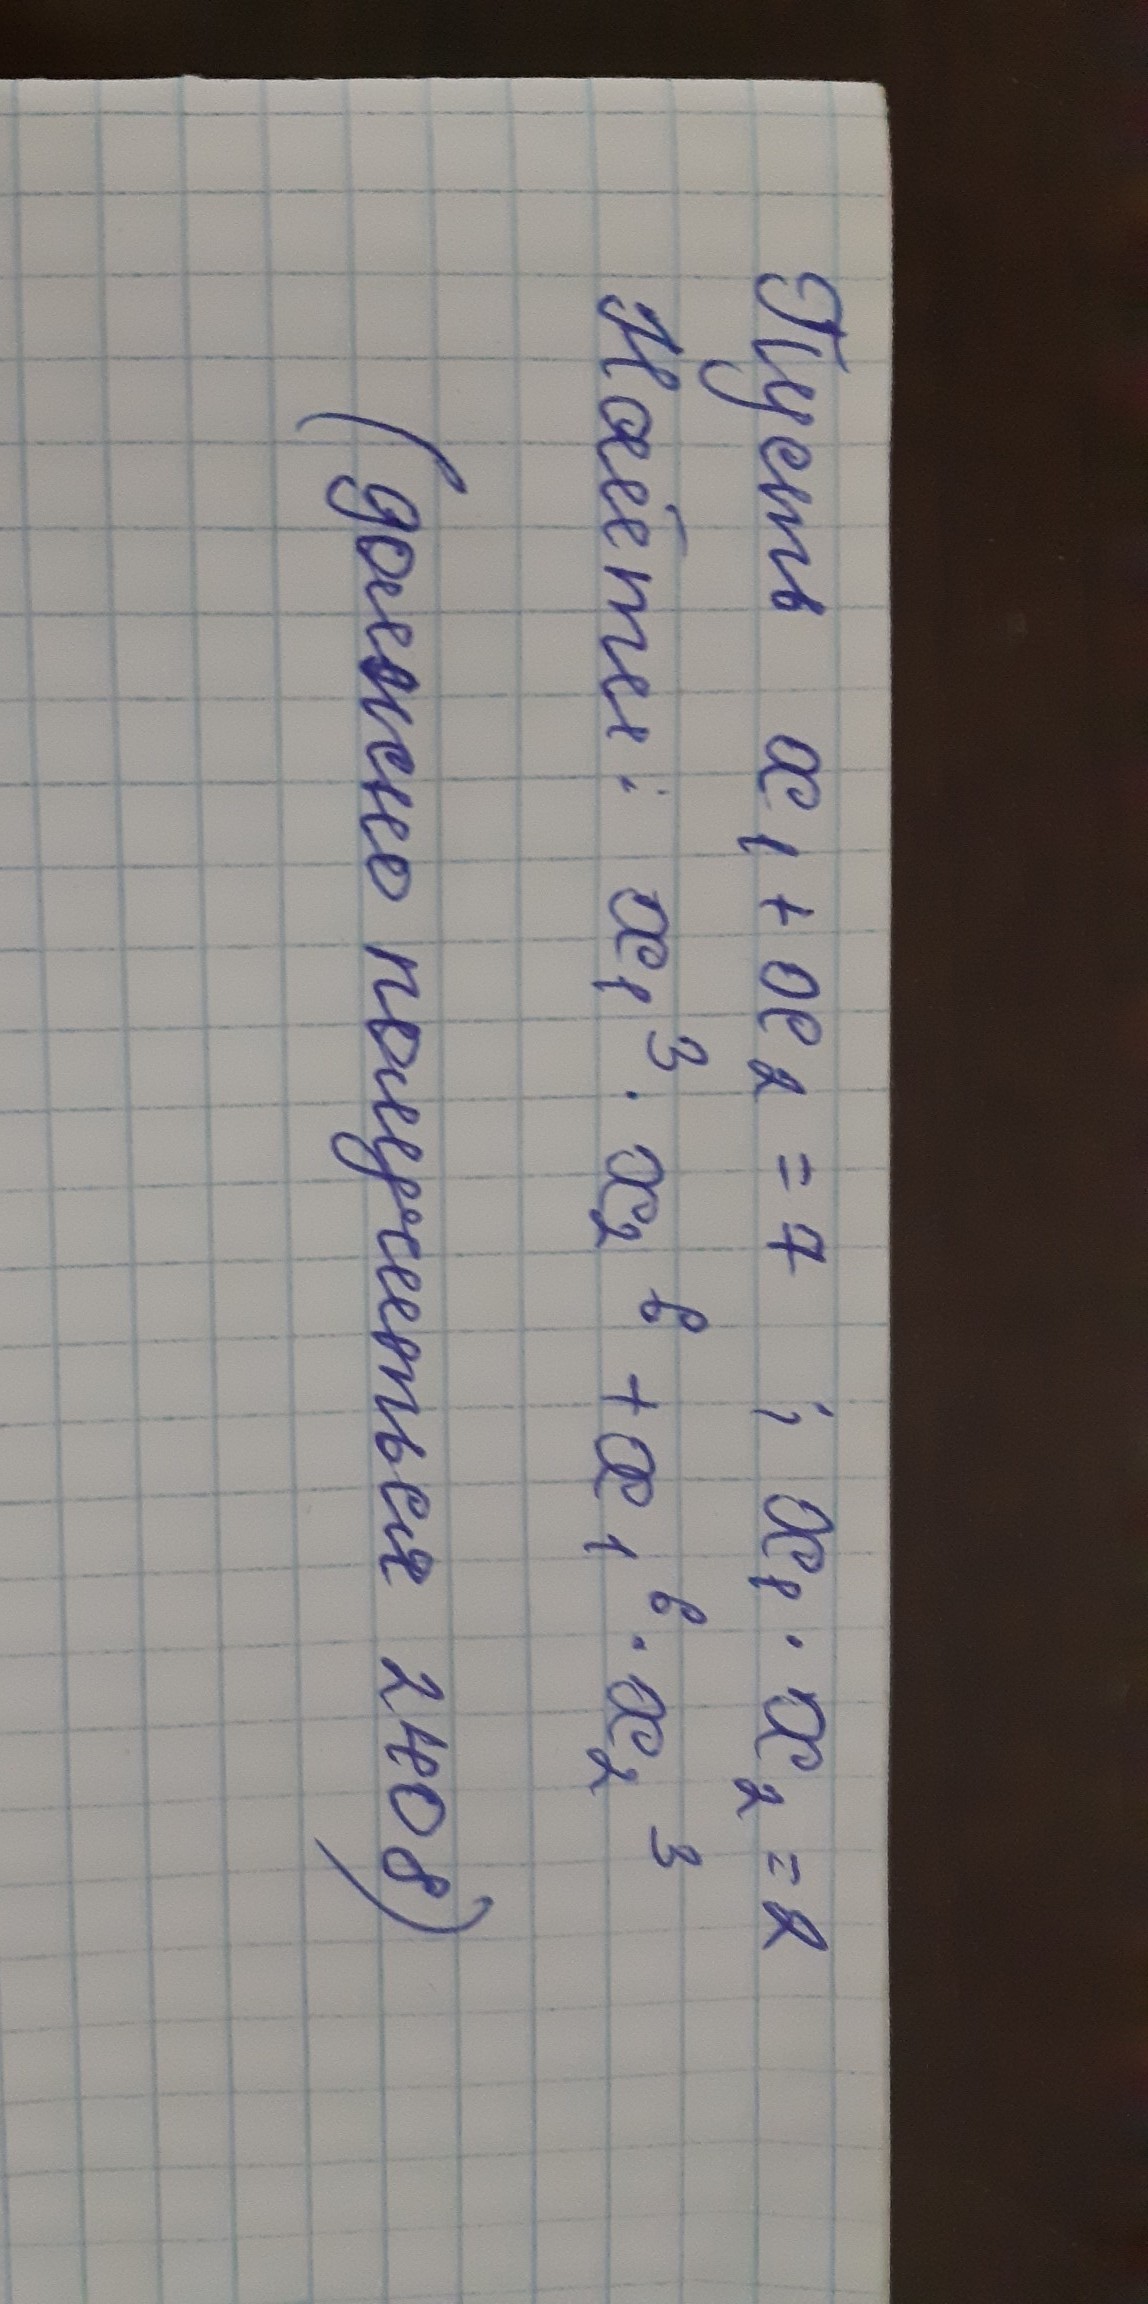 Пусть x₁ + x₂ = 7 ; x₁ · x₂ = 2
Найти: x₁³ · x₂⁶ + x₁⁶ · x₂³
(должно получиться 2408)